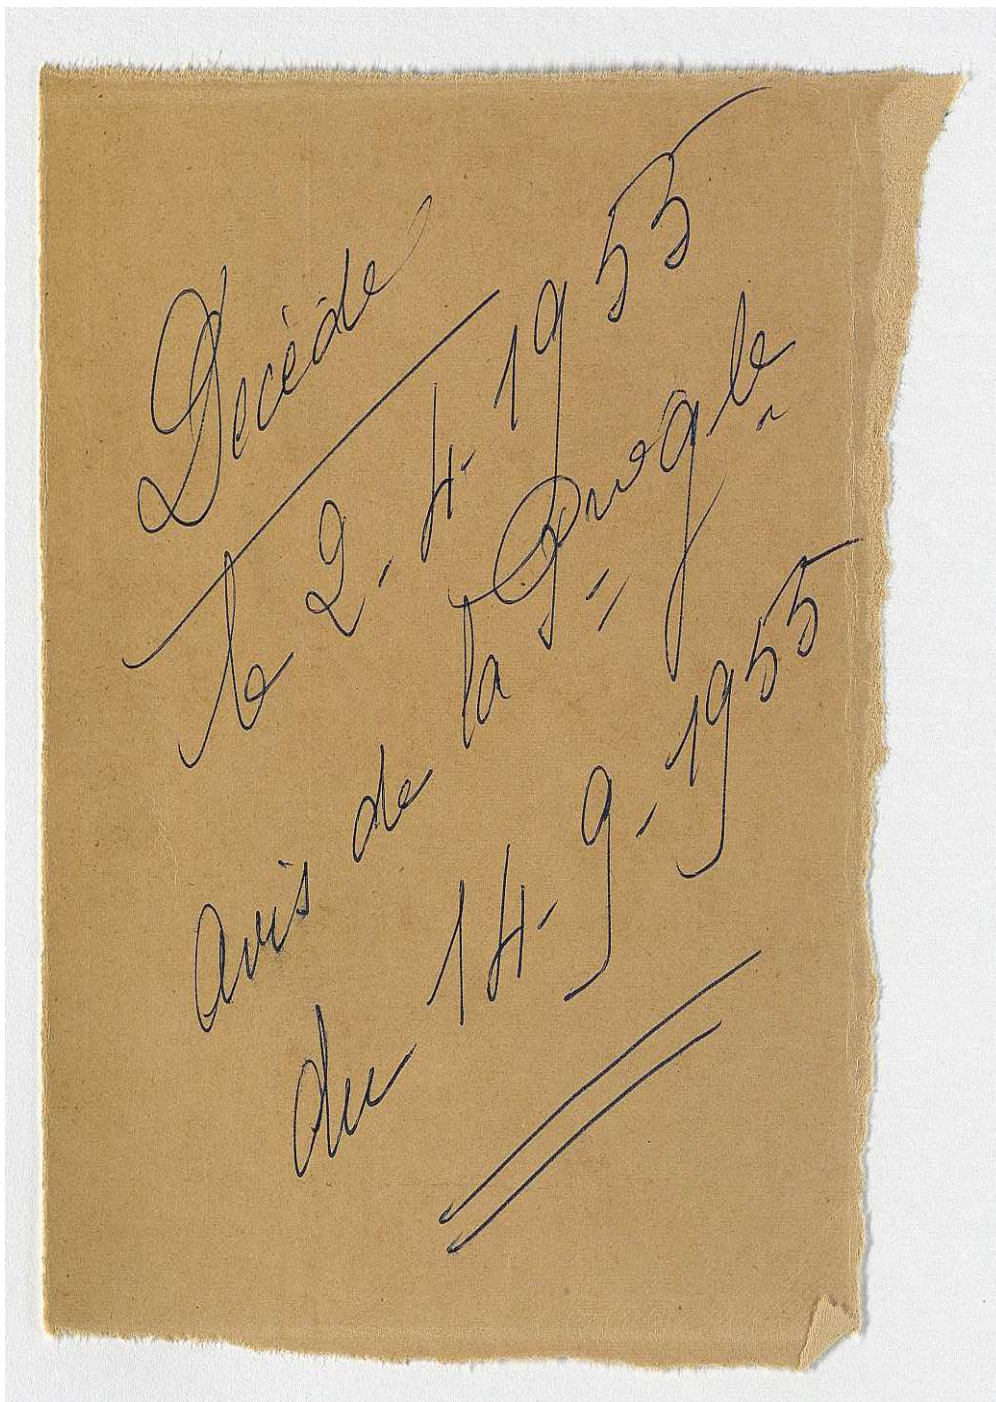 Décédé
le 2-4-1955
avis de la
du 14-9-1955